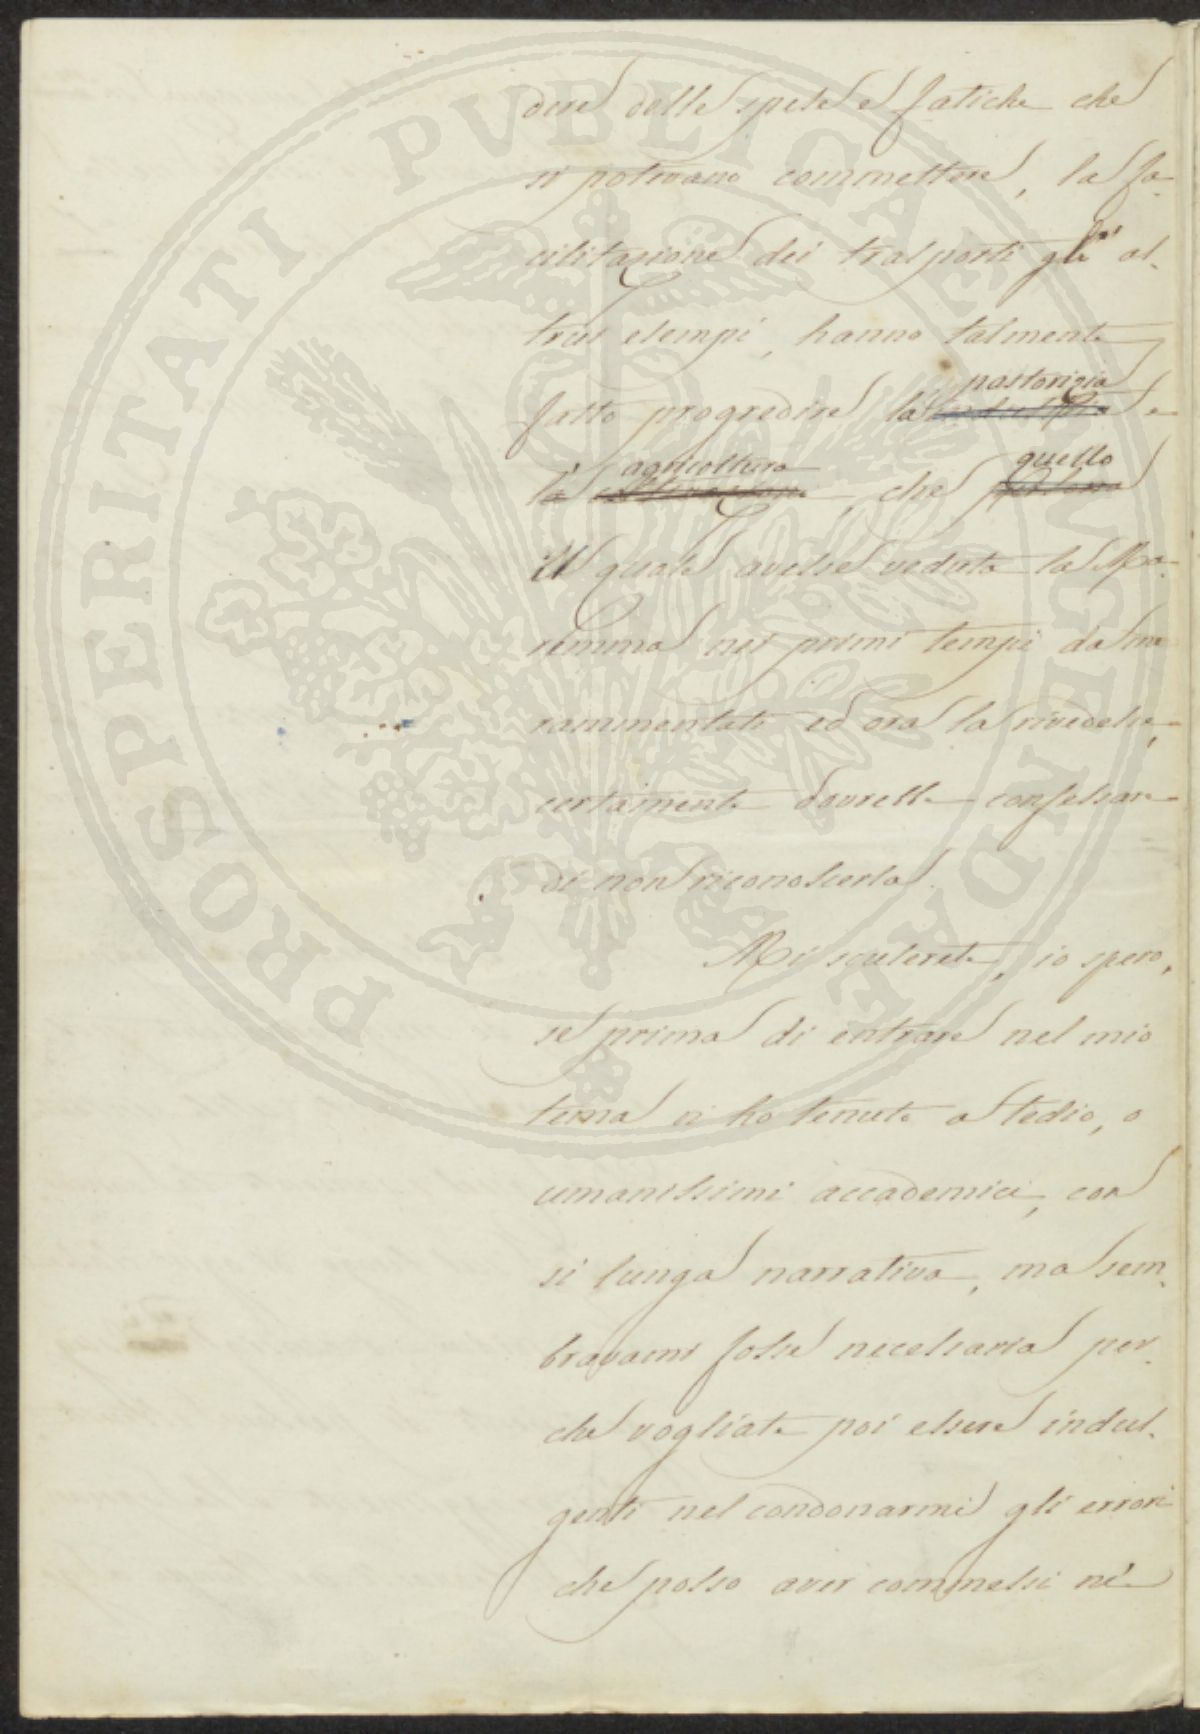 PROSPERITATI PUBLICAE AUGENDAE
dere delle spese e fatiche che
si potevano commettere, la fa-
cilitazione dei trasporti gli al-
trui esempi, hanno talmente
pastorizia
fatto progredire la industria e
agricoltura quello
la coltivazione, che persona
il quale avesse veduta la Ma-
remma nei primi tempi da me
rammentati ed ora la rivedesse,
certamente dovrebbe confessare
di non riconoscerla.
Mi scuserete, io spero,
se prima di entrare nel mio
tema vi ho tenuto a tedio, o
umanissimi accademici, con
sì lunga narrativa, ma sem-
bravami fosse necessaria per-
che vogliate poi essere indul-
genti nel condonarmi gli errori
che posso aver commessi ne'